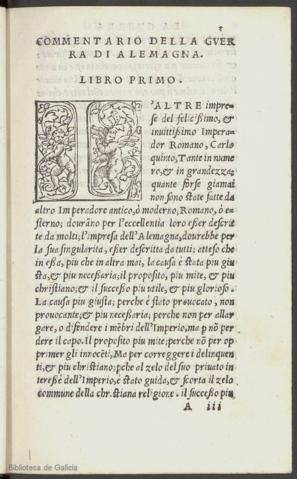 3
COMMENTARIO DELLA GVER
RA DI ALEMAGNA.
LIBRO PRIMO.
L'ALTRE impre-
se del felicissimo, et
inuittissimo Impera-
dor Romano, Carlo
quinto, Tante in nume
ro, & in grandezza,
quante forse giamai
non sono state fatte da
altro Imperadore antico, ò moderno, Romano, ò e-
sterno; dourãno per l'eccellentia loro esser descrit
te da molti; l'impresa dell'Alemagna, dourebbe per
La sua singularità, esser descritta da tutti: atteso che
in essa, piu che in altra mai, la causa è stata piu giu
sta, & piu necessaria; il proposito, piu mite, & piu
christiano; & il successo piu utile, & piu glorioso.
La causa piu giusta; perche è stato prouocato, non
prouocante; & piu necessaria; perche non per allar-
gare, o difendere i mẽbri dell'Imperio, ma p nõ per
dere il capo. Il proposito piu mite; perche nõ per op
primer gli innocẽti, Ma per correggere i delinquen
ti, & piu christiano; pche al zelo del suo priuato in
teresse dell'Imperio, è stato guida, & scorta il zelo
commune della christiana religione. il successo piu
A iii
Biblioteca de Galicia